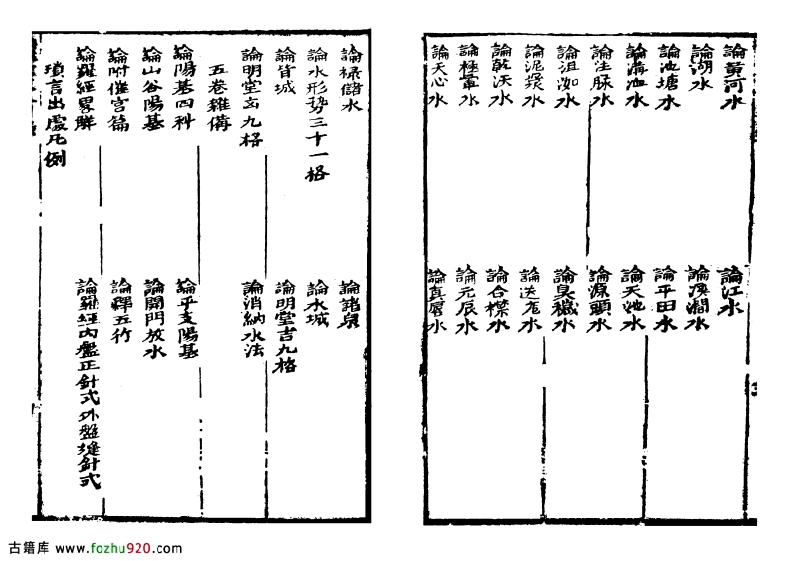 論黃河水　論江水
論湖水　論溪澗水
論池塘水　論平田水
論溝洫水　論天池水
論注脉水　論源頭水
論沮洳水　論臭穢水
論泥漿水　論送龍水
論乾沃水　論合襟水
論極暈水　論元辰水
論天心水　論真應水
論祿儲水　論諸泉
論水形勢三十一格　論水城
論背城　論明堂吉九格
論明堂凶九格　論消納水法
五卷雜俻
論陽基四科　論平支陽基
論山谷陽基　論開門放水
論附催官篇　論釋五行
論羅經畧解　論羅經內盤正針式外盤縫針式
瑣言出處凡例
古籍库 www.fozhu920.com